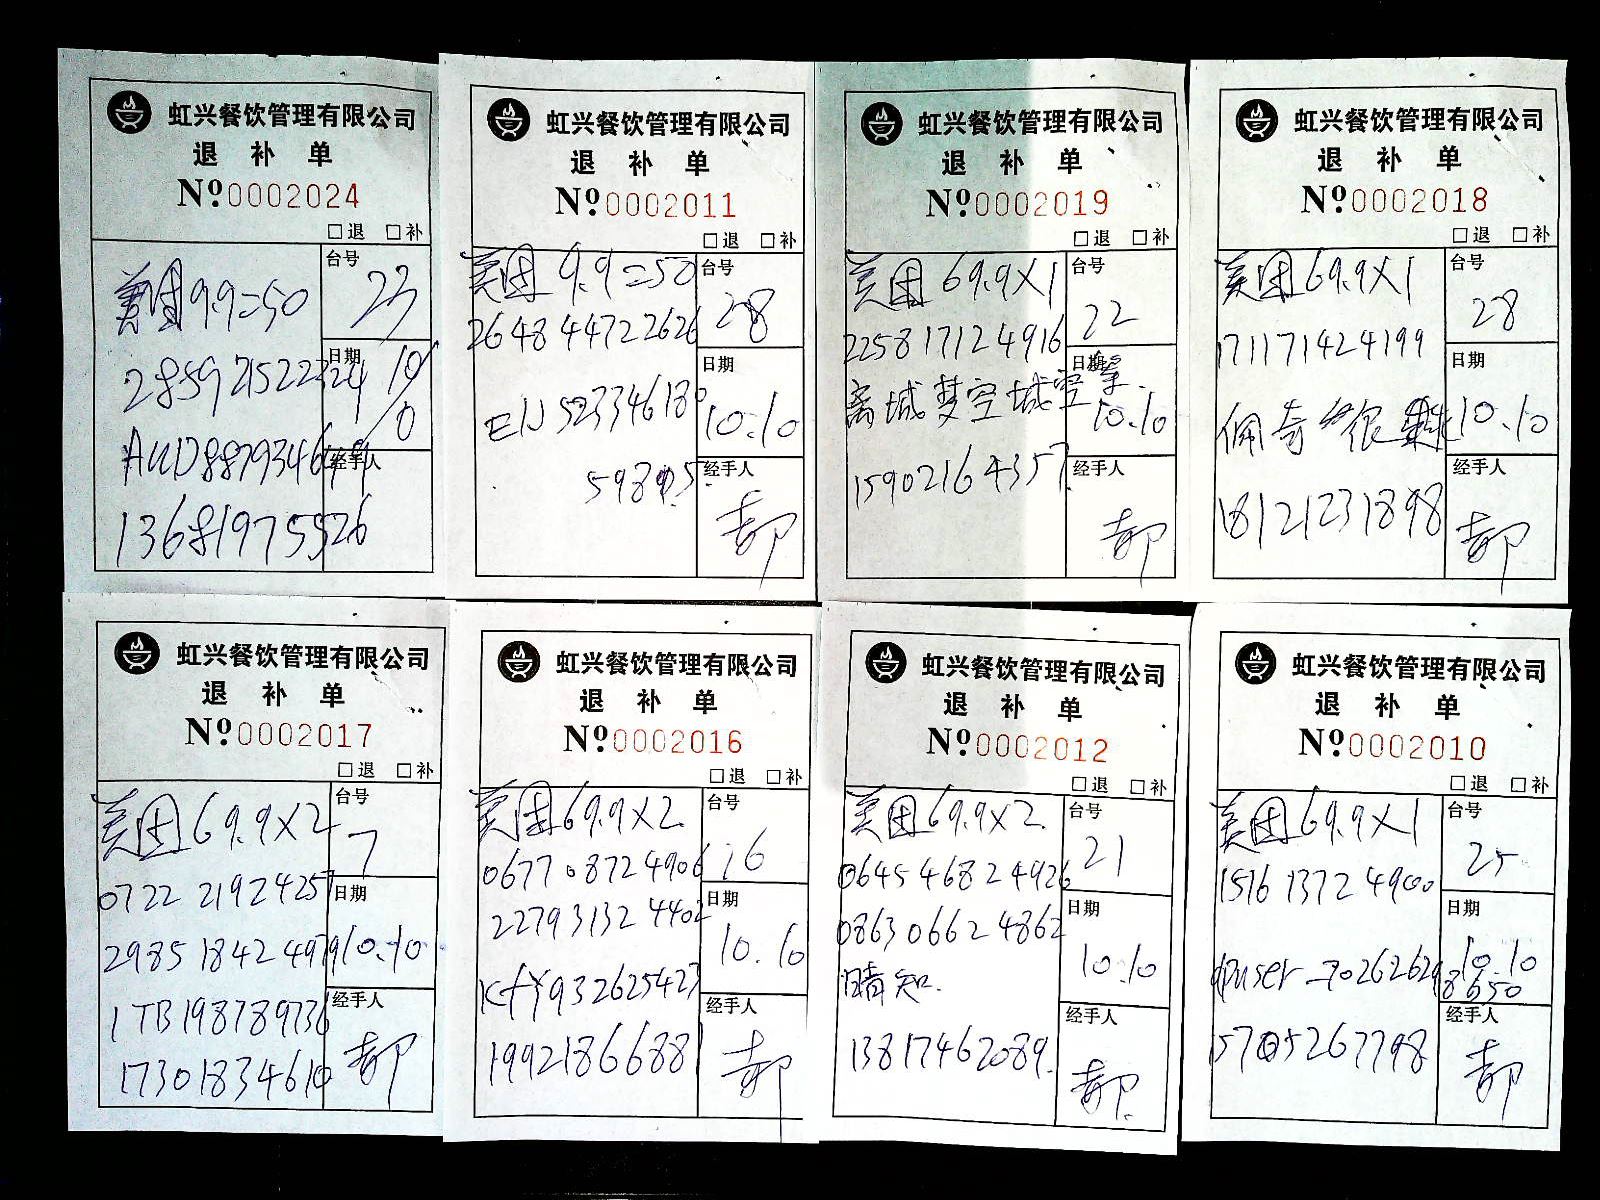 虹兴餐饮管理有限公司
退 补 单
Nº0002024
□退 □补
美团9.9=50
台号
23
日期
10/10
经手人
13681975526
虹兴餐饮管理有限公司
退 补 单
Nº0002011
□退 □补
美团 9.9=50
2648 44722626
台号
28
日期
10.10
经手人
郝
虹兴餐饮管理有限公司
退 补 单
Nº0002019
□退 □补
美团 69.9X1
2258 1712 4916
离城梦空城空
15902164357
台号
22
日期
10.10
经手人
郝
虹兴餐饮管理有限公司
退 补 单
Nº0002018
□退 □补
美团 69.9X1
171171424199
佩奇
18121231898
台号
28
日期
10.10
经手人
郝
虹兴餐饮管理有限公司
退 补 单
Nº0002017
□退 □补
美团69.9X2
0722 21924257
2985 1842 4979
1TB198789736
17301834610
台号
7
日期
10.10
经手人
郝
虹兴餐饮管理有限公司
退 补 单
Nº0002016
□退 □补
美团69.9X2.
0677 0872 4906
2279 3132 4402
KfY932625427
19921866881
台号
16
日期
10.10
经手人
郝
虹兴餐饮管理有限公司
退 补 单
Nº0002012
□退 □补
美团69.9X2.
0645 4682 4926
0863 0662 4862
晴知.
13817462089.
台号
21
日期
10.10
经手人
郝.
虹兴餐饮管理有限公司
退 补 单
Nº0002010
□退 □补
美团69.9X1
1516 1372 4900
15705267798
台号
25
日期
10.10
经手人
郝